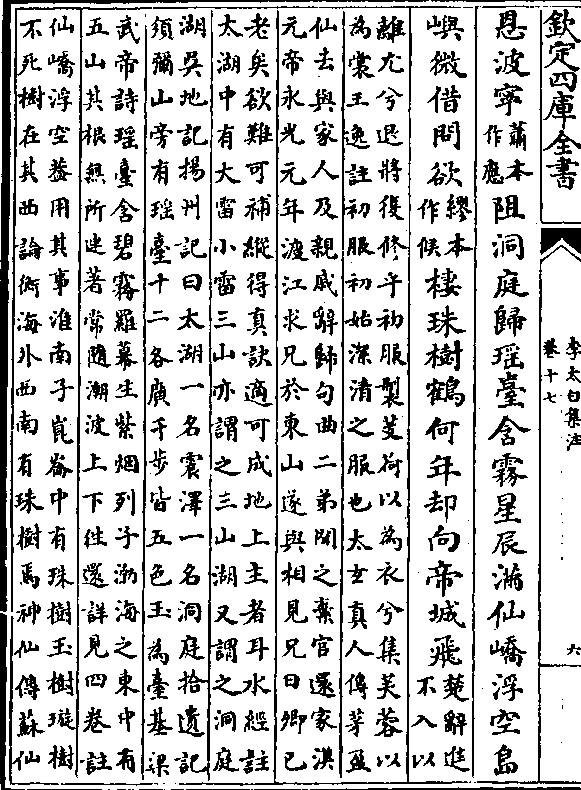 欽定四庫全書
李太白集注
卷十七
六
恩波寧蕭本作應阻洞庭歸瑶臺含霧星辰滿仙嶠浮空島
嶼微借問欲繆本作候棲珠樹鶴何年却向帝城飛楚辭進不入以
離尤兮退將復修乎初服製芰荷以為衣兮集芙蓉以
為裳王逸註初服初始潔清之服也太玄真人傳茅盈
仙去與家人及親戚辭歸句曲二弟聞之棄官還家漢
元帝永光元年渡江求兄於東山遂與相見兄曰卿已
老矣欲難可補縱得真訣適可成地上主者耳水經註
太湖中有大雷小雷三山亦謂之三山湖又謂之洞庭
湖吳地記揚州記曰太湖一名震澤一名洞庭拾遺記
須彌山旁有瑶臺十二各廣千步皆五色玉為臺基梁
武帝詩瑶臺含碧霧羅幕生紫烟列子渤海之東中有
五山其根無所連著常隨潮波上下往還詳見四卷註
仙嶠浮空葢用其事淮南子崑崙中有珠樹玉樹璇樹
不死樹在其西論衡海外西南有珠樹焉神仙傳蘇仙